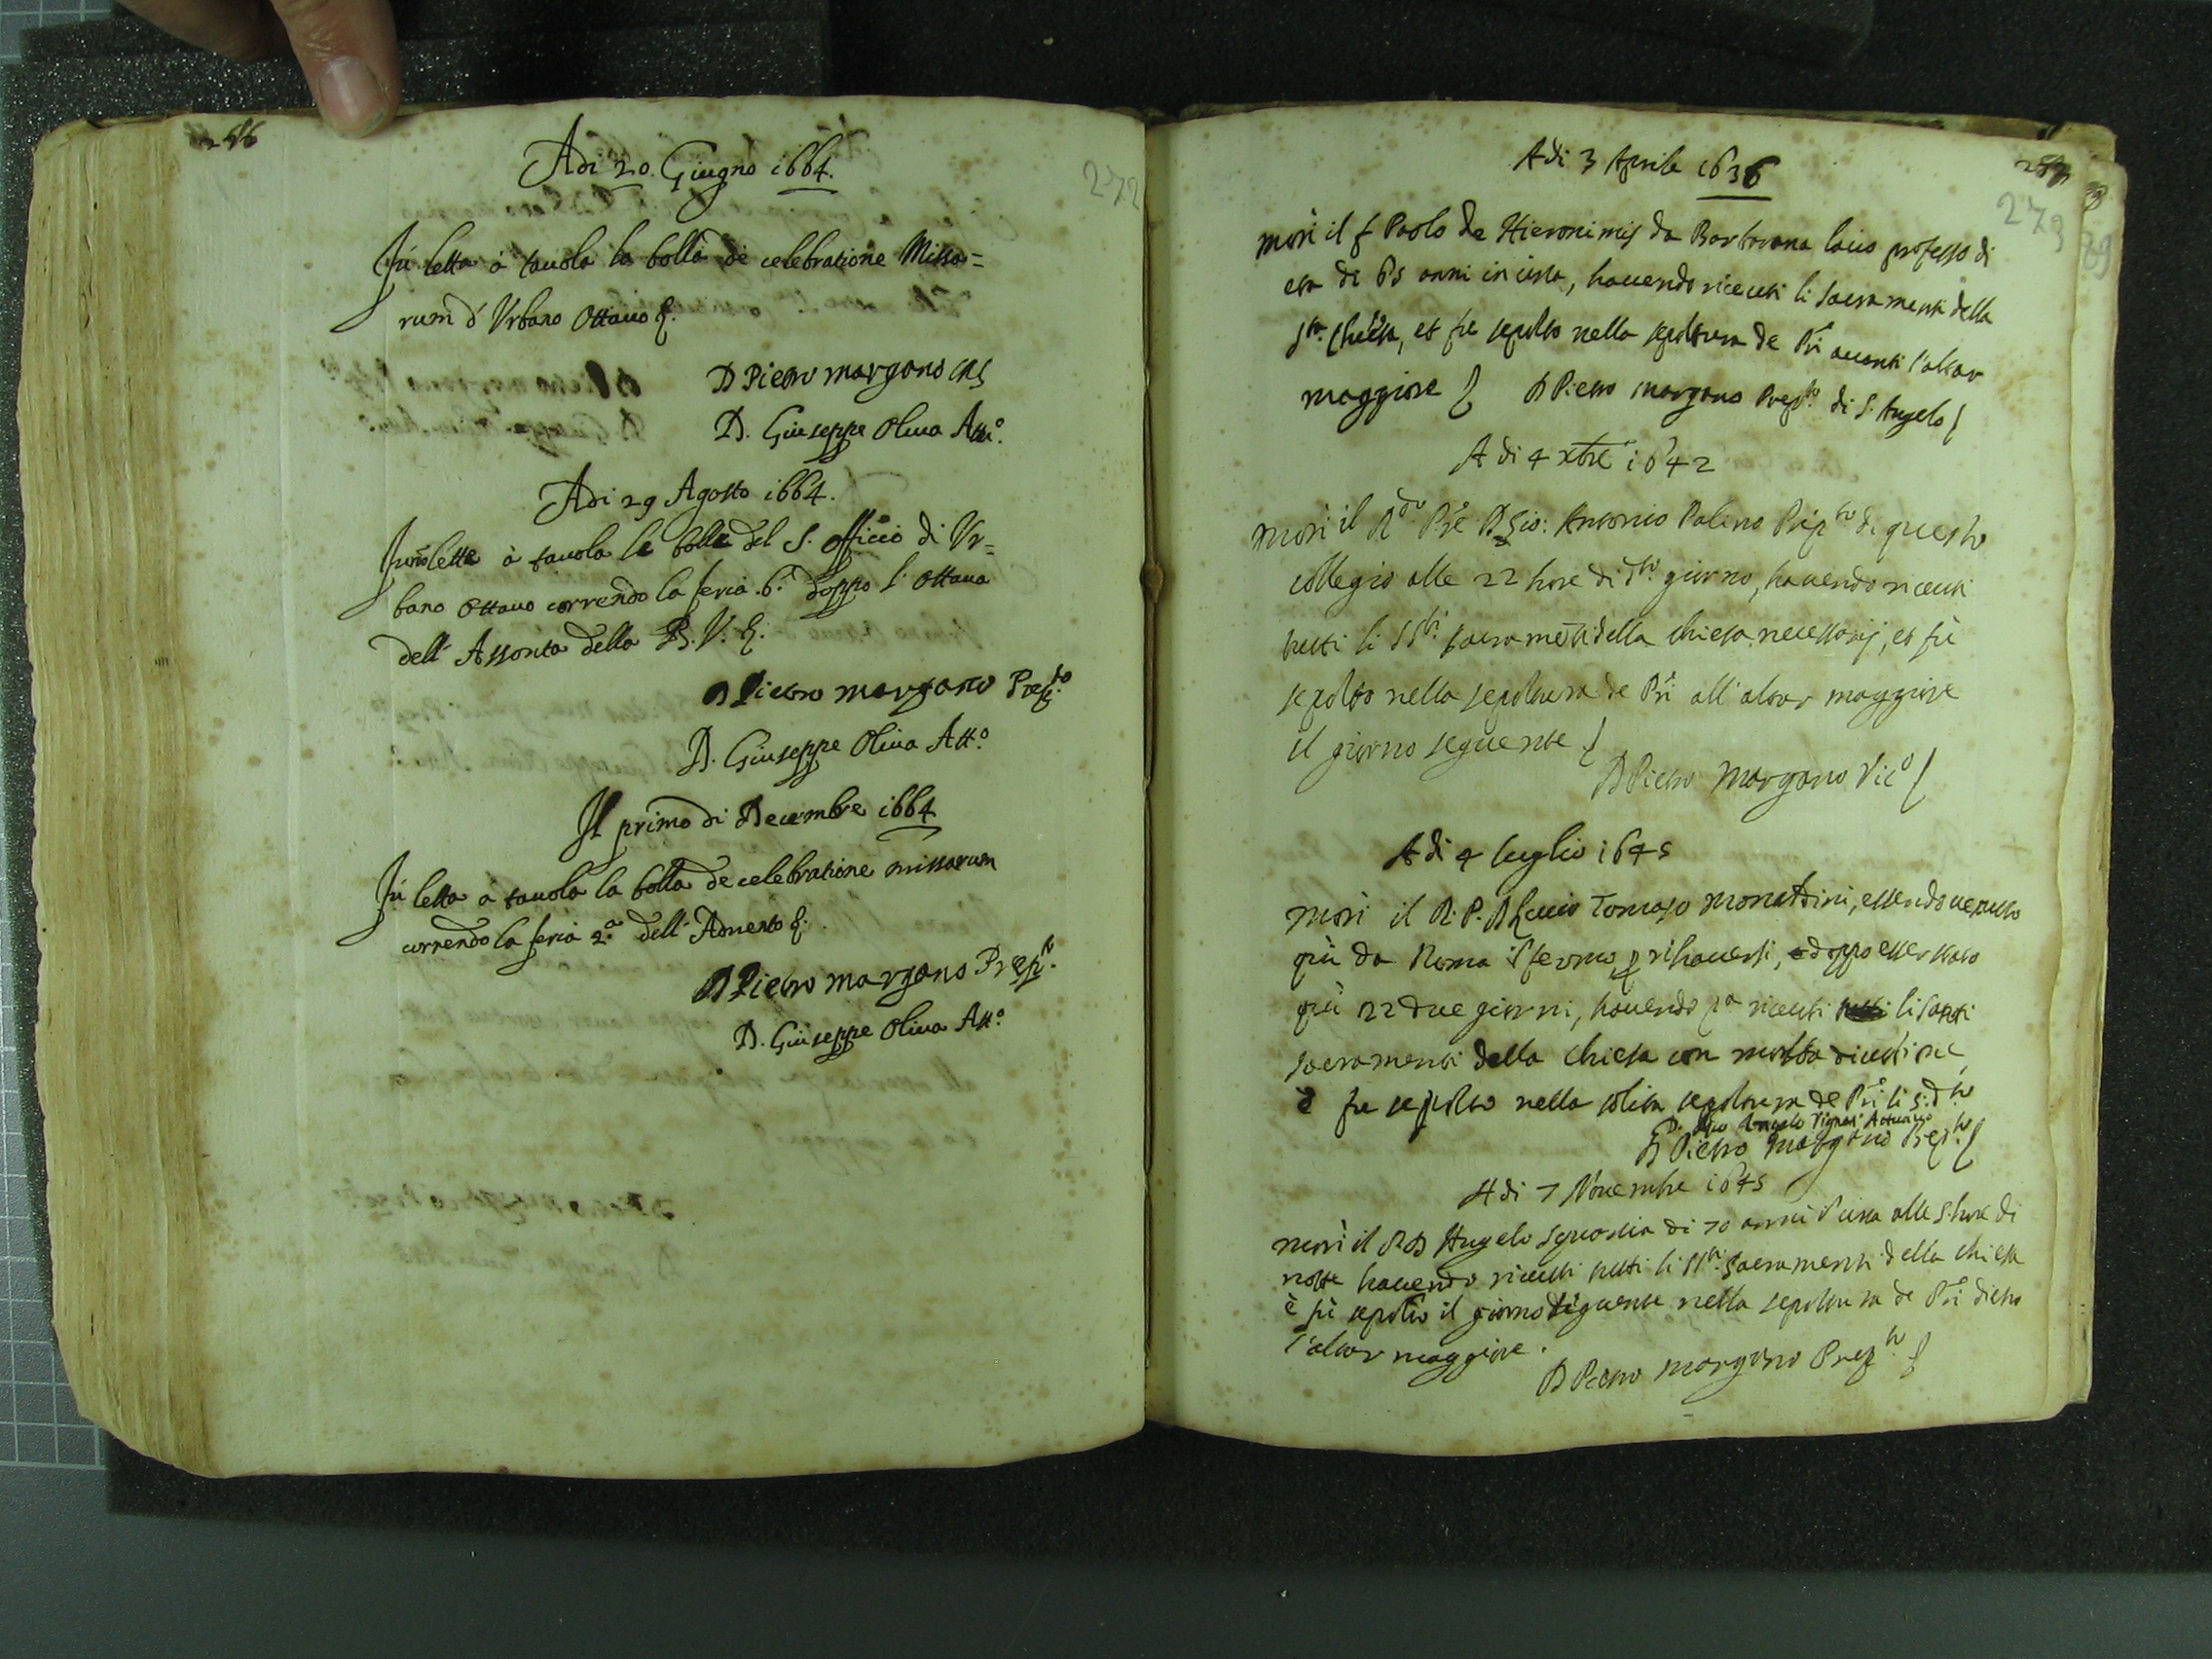 256
272
Adi 20. Giugno 1664.
Fù letta à tauola la bolla de celebratione Missa=
rum d'Vrbano Ottauo &.
D Pietro Morgano
D. Giuseppe Oliua Att.º
Adi 29 Agosto 1664.
Furno lette à tauola le bolle del S. Officio di Vr=
bano Ottauo correndo la feria .6.ª doppo l'Ottaua
dell'Assonta della B. V. &.
D Pietro morgano Prep.to
D. Giuseppe Oliua Att.º
Il primo di Decembre 1664
Fù letta à tauola la bolla de celebratione missarum
correndo la feria 2.ª dell'Aduento &.
D Pietro morgano Prep.to
D. Giuseppe Oliua Att.º
257
273
A di 3 Aprile 1636
morì il f Paolo de Hieronimis da Barbarana laico professo di
eta di 65 anni in circa, hauendo riceuti li sacramenti della
s.ta Chiesa, et fu sepolto nella sepoltura de Pri auanti l'altar
maggiore D Pietro morgano Prep.to di S. Angelo
A di 4 xbre 1642
morì il R.do Pre D. Gio: Antonio Palino Prep.to di questo
collegio alle 22 hore di d.to giorno, hauendo riceuti
tutti li SS.mi sacrameti della chiesa necessarij, et fù
sepolto nella sepoltura de Pri all'altar maggiore
il giorno seguente
D Pietro Morgano Vic.º
A di 4 luglio 1645
morì il R. P. D Tomaso essendo uenuto
quì da Roma ifermo p rihauersi, doppo esser stato
quì 22 due giorni, hauendo p.ª riceuti li santi
sacramenti della chiesa con molta
è fu sepolto nella solita sepoltura de Pri li 5 d.to
D. Angelo Attuario
D Pietro Morgano Prep.to
A di 7 Nouembre 1645
morì il R D Angelo di 70 anni i circa alle 5 hore di
notte hauendo riceuti tutti li SS.mi Sacramenti della chiesa
è fù sepolto il giorno seguente nella sepoltura de Pri dietro
l'altar maggiore.
D Pietro morgano Prep.to